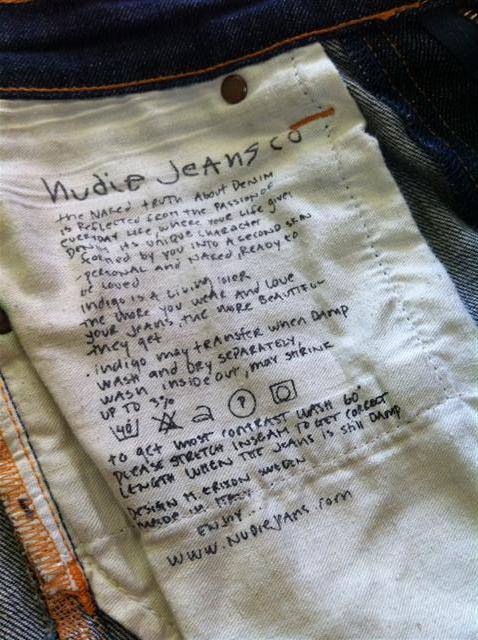 Nudie Jeans co
the NAKED truth About DENIM
is Reflected from the PASSION of
EVERYDAY LIFE, where YOUR LIFE gives
DENIM its unique character
formed by you INTO A second skin
personal AND NAKED, READY to
be loved
INDigo is A Living color
the more you wear and Love
your JEANS, the more BEAUTIFUL
they get
indigo may transfer when DAMP
WASH AND DRY SEPARATELY,
WASH INSIDE out, may shrink
UP TO 3%
40 P
to get most CONTRAST WASH 60°
PLEASE STRETCH INSEAM TO GET CORRECT
LENGTH WHEN THE JEANS is still DAMP
DESIGN M. ERIXON SWEDEN
MADE IN ITALY
ENJOY...
www.NudieJeans.com